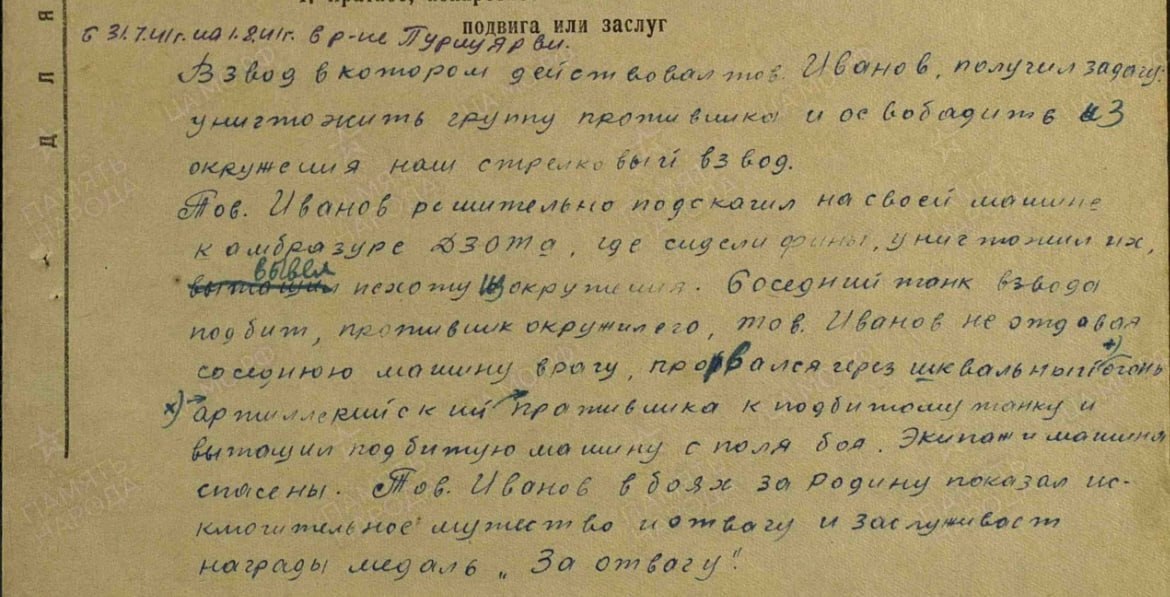 подвига или заслуг
с 31.7.41г. на 1.8.41г. в р-не
Взвод в котором действовал тов. Иванов, получил задачу:
уничтожить группу противника и освобадить из
окружения наш стрелковый взвод.
Тов. Иванов решительно подскачил на своей машине
к амбразуре ДЗОТа, где сидели фины, уничтожил их,
вывел
вытащил пехоту из окружения. Соседний танк взвода
подбит, противник окружил его, тов. Иванов не отдавая
соседнюю машину врагу, прорвался через шквальный +) огонь
х) артиллерийский пративника к подбитому танку и
вытащил подбитую машину с поля боя. Экипаж и машина
спасены. Тов. Иванов в боях за Родину показал ис-
ключительное мужество и отвагу и заслуживает
награды медаль „За отвагу"!
Д Л Я
ПАМЯТЬ НАРОДА
ЦАМО РФ